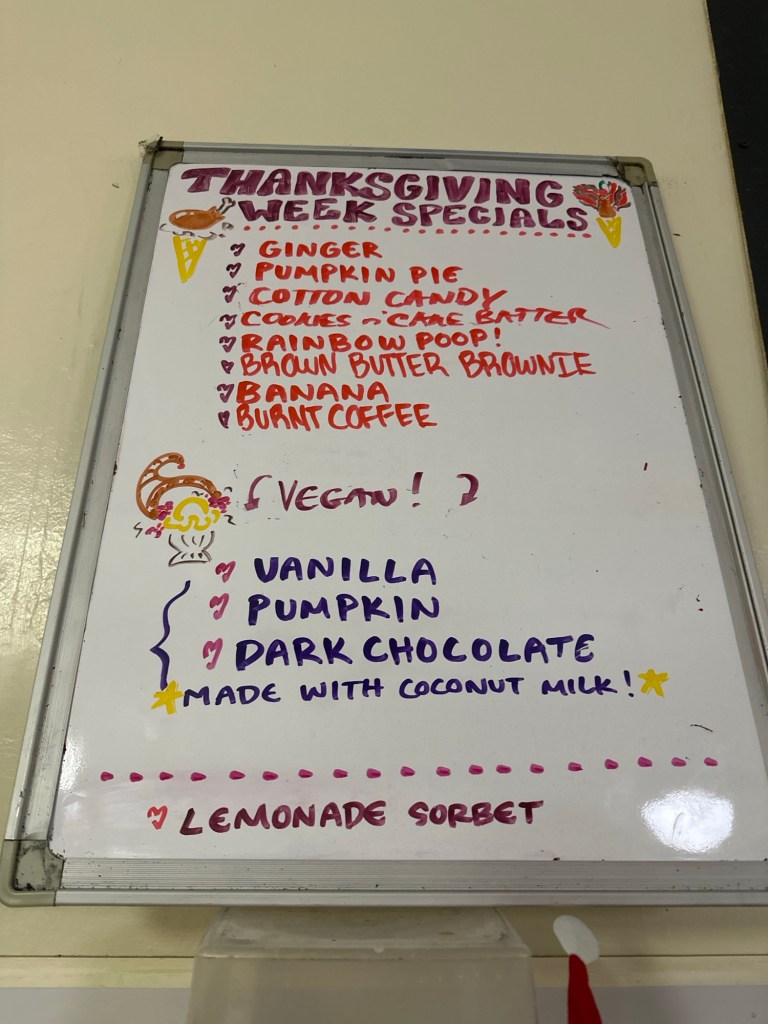 THANKSGIVING
WEEK SPECIALS
GINGER
PUMPKIN PIE
COTTON CANDY
COOKIES n' CAKE BATTER
RAINBOW POOP!
BROWN BUTTER BROWNIE
BANANA
BURNT COFFEE
VEGAN!
VANILLA
PUMPKIN
DARK CHOCOLATE
MADE WITH COCONUT MILK!
LEMONADE SORBET